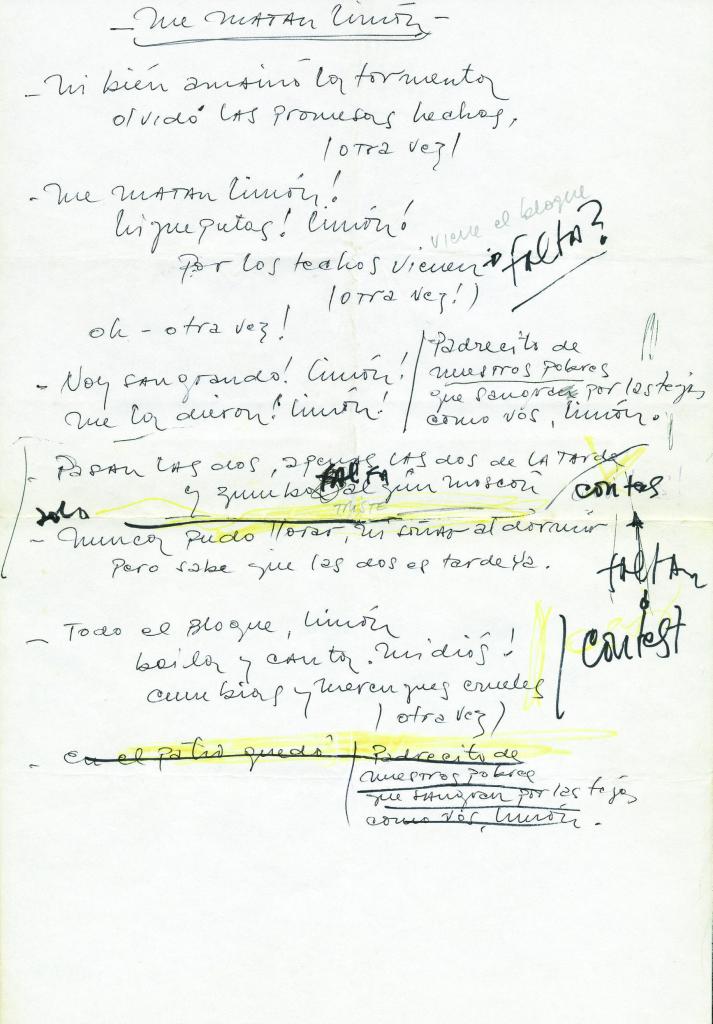 - Me MATAN Limón -
- Ni bién amainó la tormenta
olvidó LAS promesas hechas,
(otra vez)
- Me MATAN Limón!
hijueputas! Limón!
viene el bloque
Por los techos vienen FALTA?
(otra vez!)
oh - otra vez!
- Voy sangrando! Limón!
me la dieron! Limón!
Padrecito de
nuestros pobres
que sangran por las tejas
como vós, Limón.
- PASAN LAS dos, apenas LAS dos de LA TARDE
FALTA
y zumba algún moscón
contes
solo
TRISTE
- Nunca pudo llorar, ni soñar al dormir
pero sabe que las dos es tarde ya.
FALTAN
- Todo el Bloque, Limón
baila y canta. mi diós!
cumbias y merengues crueles
(otra vez)
contest
- en el patio quedó
Padrecito de
nuestros pobres
que sangran por las tejas
como vós, Limón.